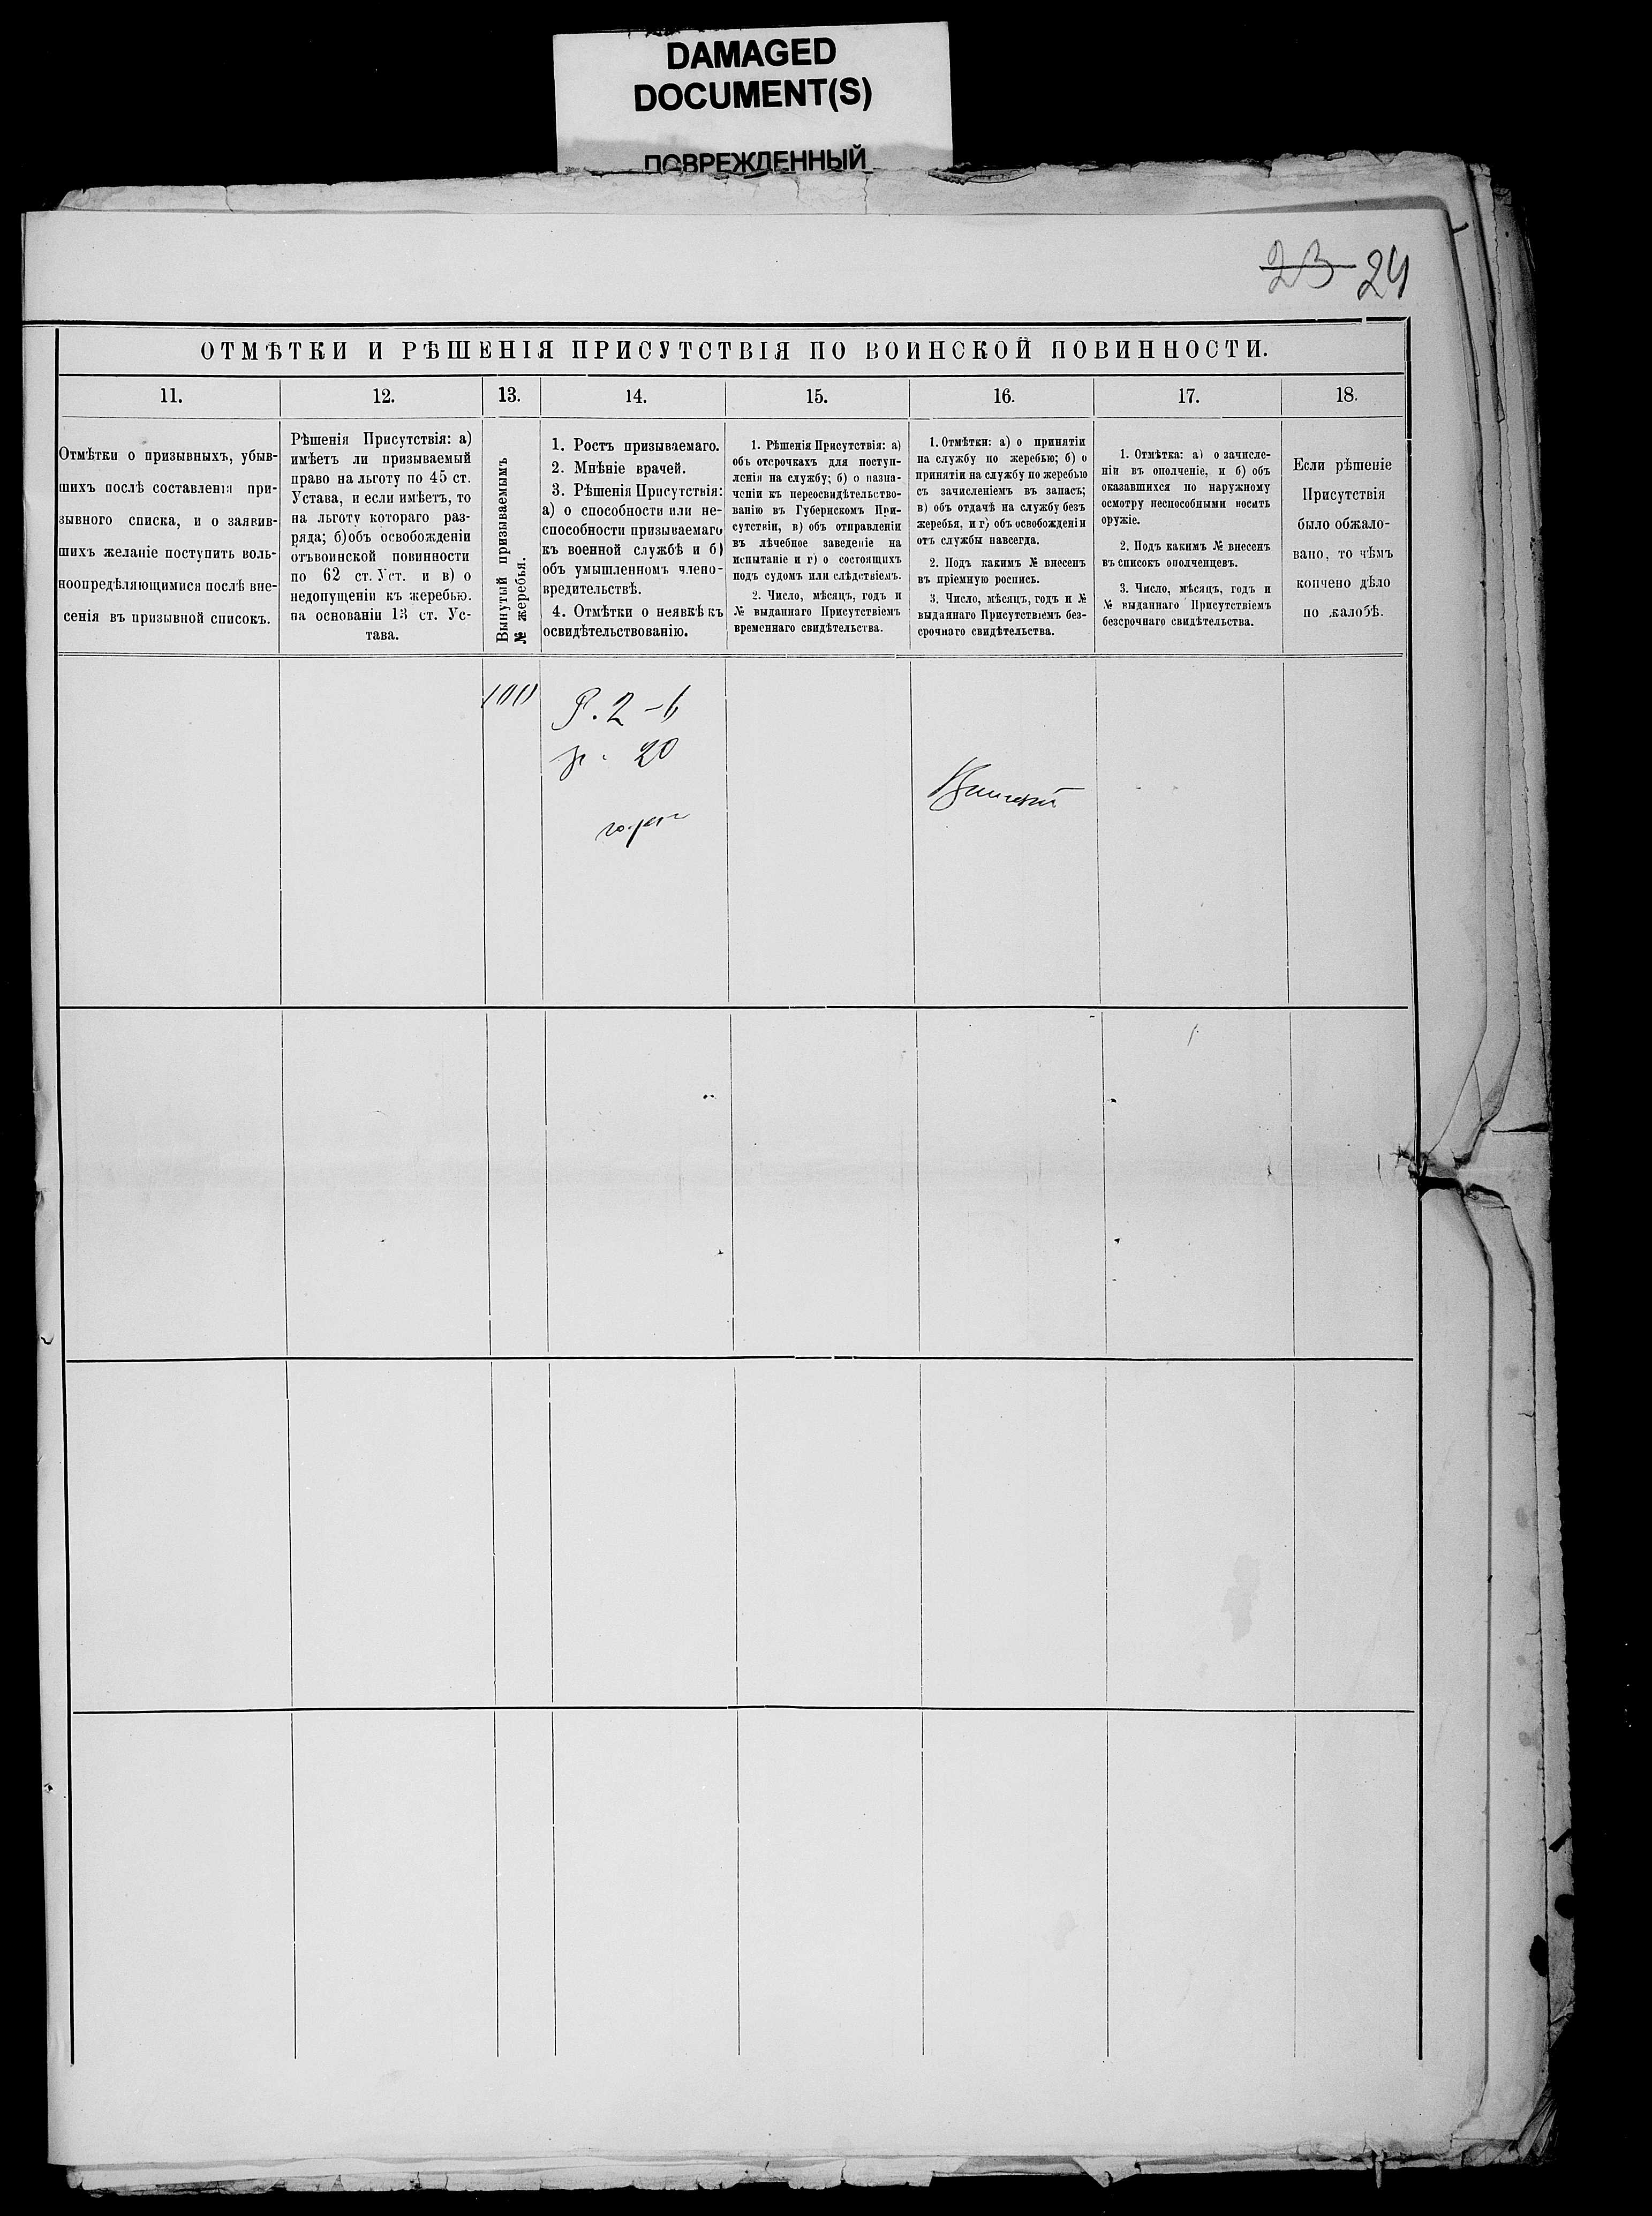 DAMAGED
DOCUMENT(S)
ПОВРЕЖДЕННЫЙ
23 24
ОТМѢТКИ И РѢШЕНІЯ ПРИСУТСТВІЯ ПО ВОИНСКОЙ ПОВИННОСТИ.
11.
12.
13.
14.
15.
16.
17.
18.
Отмѣтки о призывныхъ, убыв-
шихъ послѣ составленія при-
зывного списка, и о заявив-
шихъ желаніе поступить воль-
ноопредѣляющимися послѣ вне-
сенія въ призывной списокъ.
Рѣшенія Присутствія: а)
имѣетъ ли призываемый
право на льготу по 45 ст.
Устава, и если имѣетъ, то
на льготу котораго раз-
ряда; б) объ освобожденіи
отъ воинской повинности
по 62 ст. Уст. и в) о
недопущеніи къ жеребью.
на основаніи 13 ст. Ус-
тава.
Вынутый призываемымъ
№ жеребья.
1. Ростъ призываемаго.
2. Мнѣніе врачей.
3. Рѣшенія Присутствія:
а) о способности или не-
способности призываемаго
къ военной службѣ и б)
объ умышленномъ члено-
вредительствѣ.
4. Отмѣтки о неявкѣ къ
освидѣтельствованію.
1. Рѣшенія Присутствія: а)
объ отсрочкахъ для поступ-
ленія на службу; б) о назна-
ченіи къ переосвидѣтельство-
ванію въ Губернскомъ При-
сутствіи, в) объ отправленіи
въ лѣчебное заведеніе на
испытаніе и г) о состоящихъ
подъ судомъ или слѣдствіемъ.
2. Число, мѣсяцъ, годъ и
№ выданнаго Присутствіемъ
временнаго свидѣтельства.
1. Отмѣтки: а) о принятіи
на службу по жеребью; б) о
принятіи на службу по жеребью
съ зачисленіемъ въ запасъ;
в) объ отдачѣ на службу безъ
жеребья, и г) объ освобожденіи
отъ службы навсегда.
2. Подъ какимъ № внесенъ
въ пріемную роспись.
3. Число, мѣсяцъ, годъ и №
выданнаго Присутствіемъ без-
срочнаго свидѣтельства.
1. Отмѣтка: а) о зачисле-
ніи въ ополченіе, и б) объ
оказавшихся по наружному
осмотру неспособными носить
оружіе.
2. Подъ какимъ № внесенъ
въ списокъ ополченцевъ.
3. Число, мѣсяцъ, годъ и
№ выданнаго Присутствіемъ
безсрочнаго свидѣтельства.
Если рѣшеніе
Присутствія
было обжало-
вано, то чѣмъ
кончено дѣло
по жалобѣ.
Р. 2 - 6
20